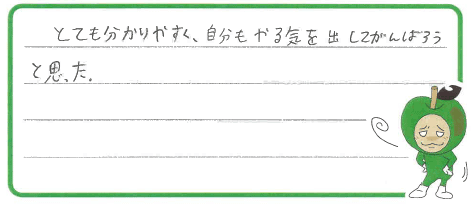 とても分かりやすく、自分もやる気を出してがんばろう
と思った。